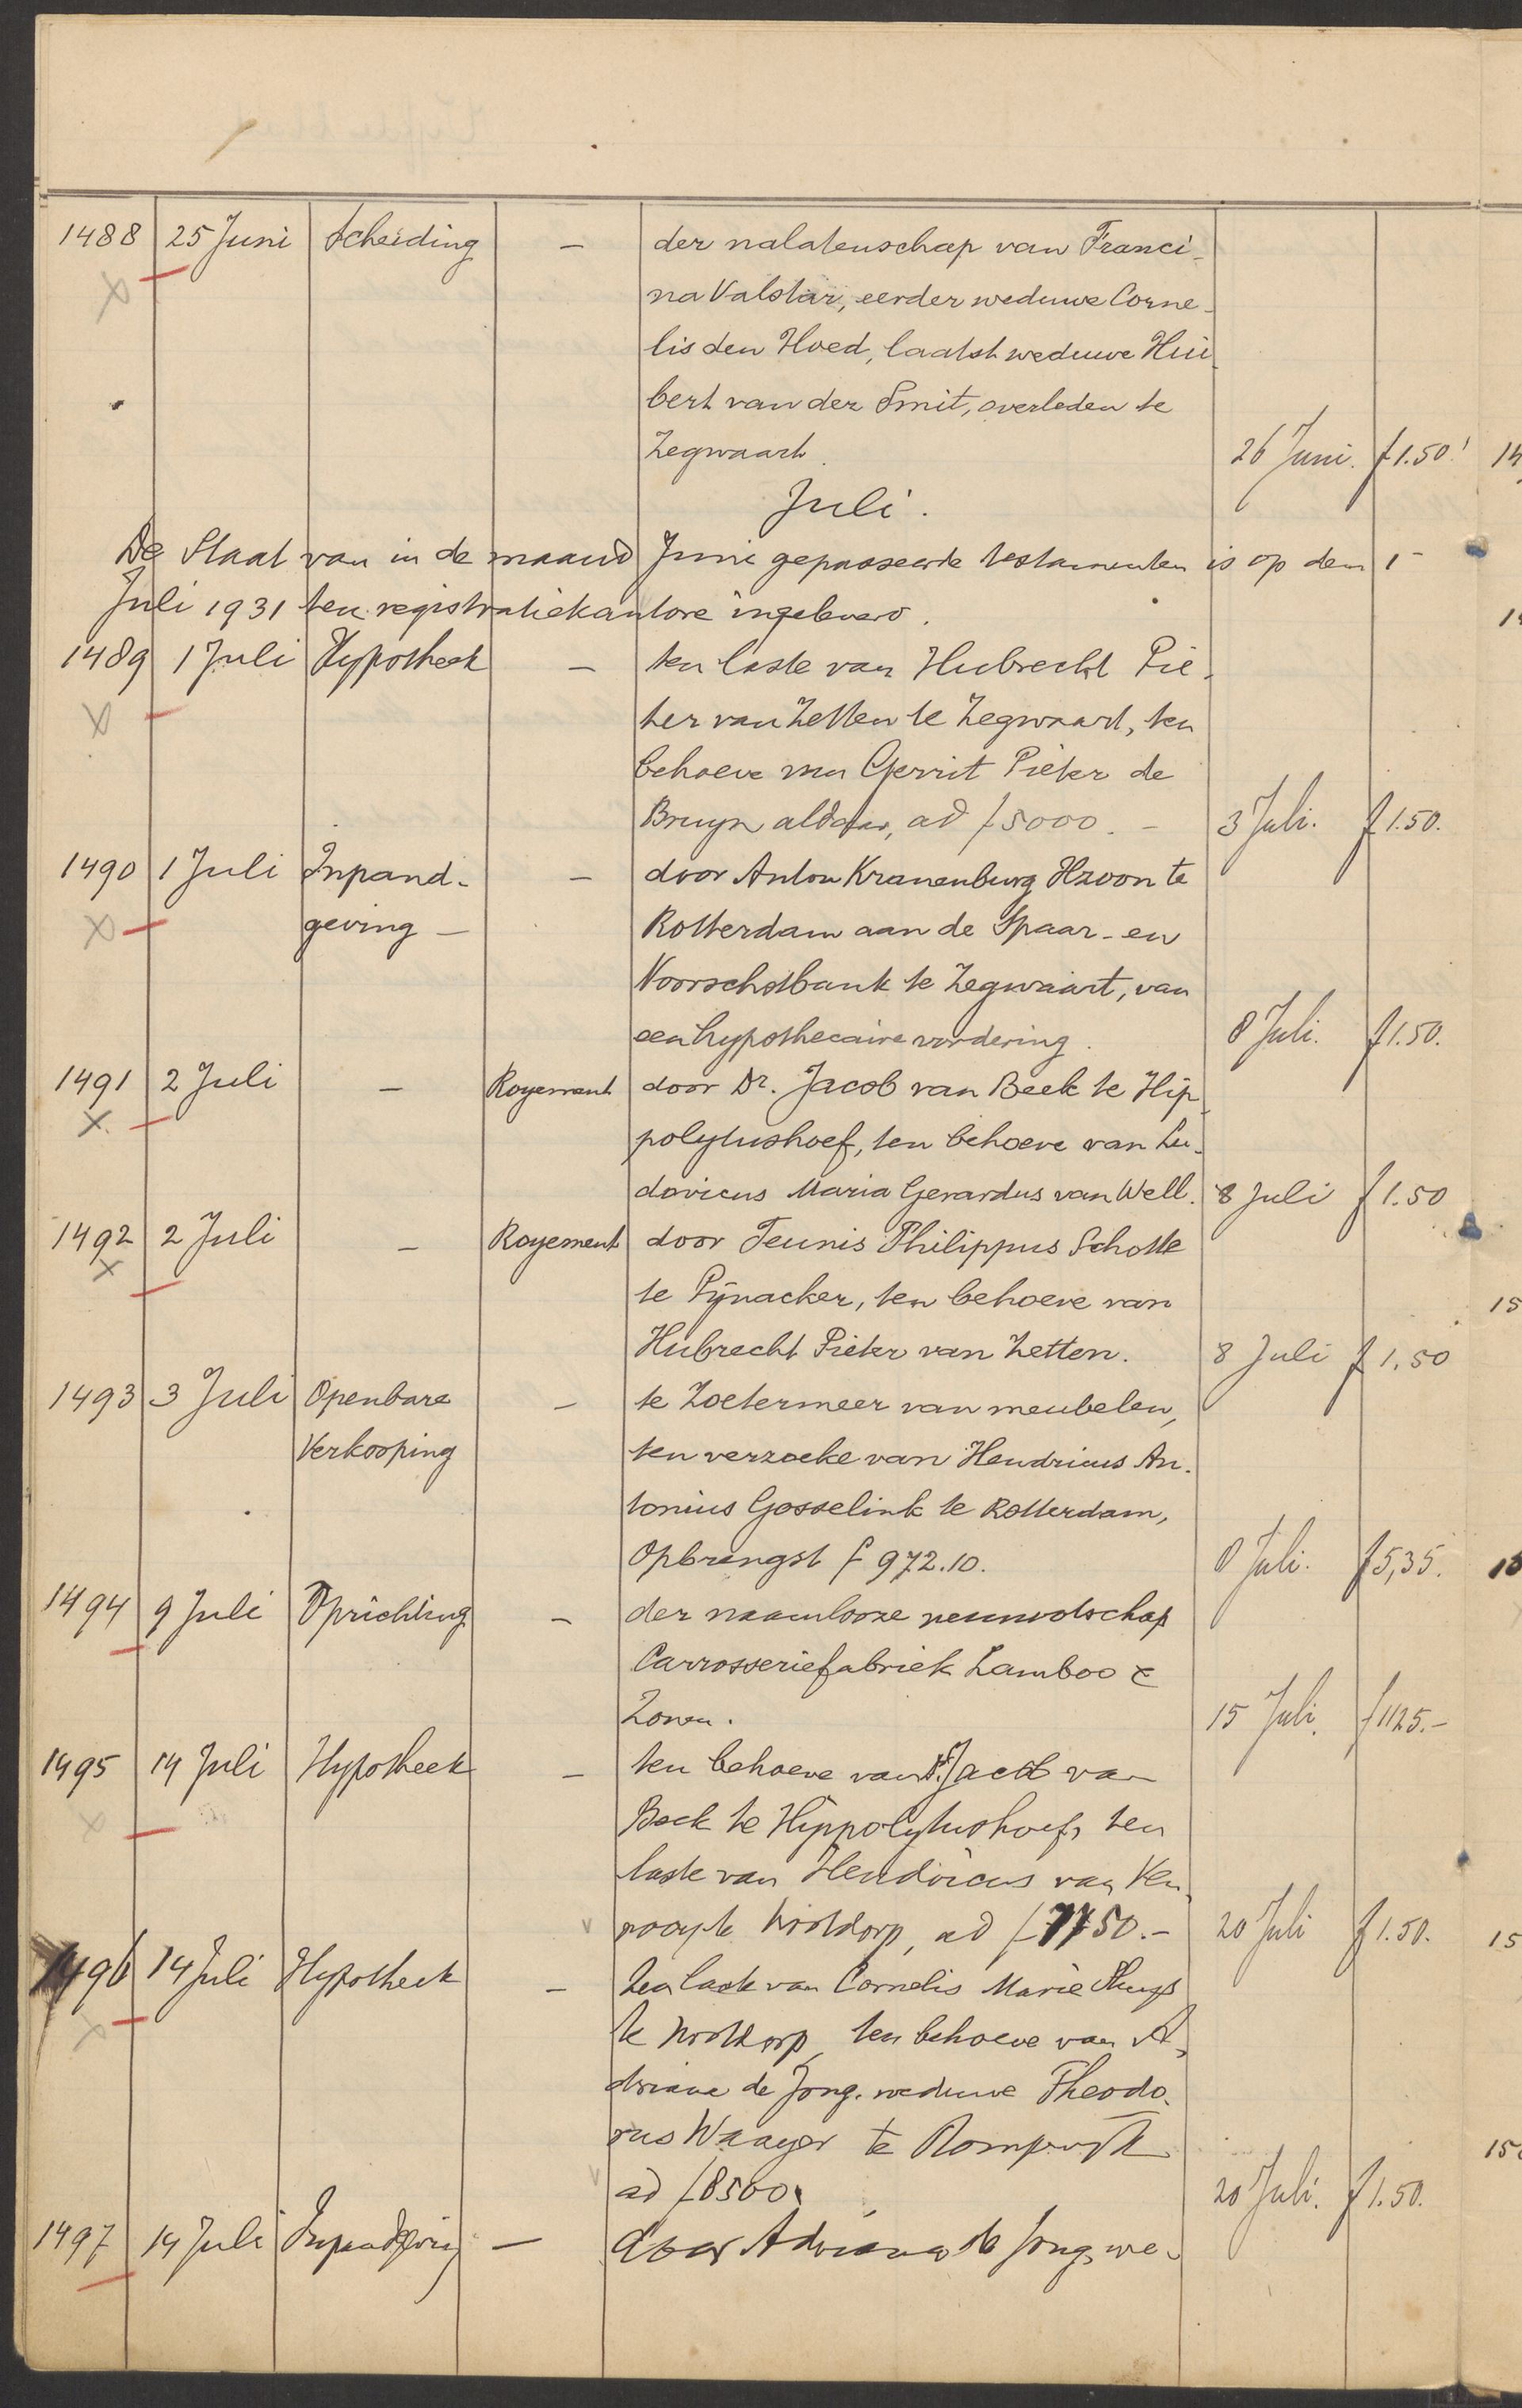 1488 25 Juni Scheiding — der nalatenschap van Franci-
na Valstar, eerder weduwe Corne-
lis den Hoed, laatst weduwe Hui-
bert van der Smit, overleden te
Zegwaart. 26 Juni. f 1.50
Juli.
De Staat van in de maand Juni gepasseerde testamenten is op den 1
Juli 1931 ten registratiekantore ingeleverd.
1489 1 Juli Hypotheek — ten laste van Hubrecht Pie-
ter van Zetten te Zegwaart, ten
behoeve van Gerrit Pieter de
Bruyn aldaar, ad f 5000.- 3 Juli. f 1.50.
1490 1 Juli Inpand- — door Anton Kranenburg Hzoon te
geving — Rotterdam aan de Spaar- en
Voorschotbank te Zegwaart, van
een hypothecaire vordering. 8 Juli. f 1.50.
1491 2 Juli — Royement door Dr. Jacob van Beek te Hip-
polytushoef, ten behoeve van Lu-
dovicus Maria Gerardus van Well. 8 Juli f 1.50
1492 2 Juli — Royement door Teunis Philippus Scholte
te Pijnacker, ten behoeve van
Hubrecht Pieter van Zetten. 8 Juli f 1.50
1493 3 Juli Openbare — te Zoetermeer van meubelen,
Verkooping ten verzoeke van Hendricus An-
tonius Gosselink te Rotterdam,
Opbrengst f 972.10. 8 Juli. f 5,35.
1494 9 Juli Oprichting — der naamlooze vennootschap
Carrosseriefabriek Lamboo &
Zonen. 15 Juli. f 1125.-
1495 14 Juli Hypotheek — ten behoeve van Dr. Jacob van
Beek te Hippolytushoef, ten
laste van Hendricus van Ven-
rooy te Nootdorp, ad f 7750.- 20 Juli f 1.50.
1496 14 Juli Hypotheek — ten laste van Cornelis Marie
te Nootdorp, ten behoeve van A-
driana de Jong, weduwe Theodo-
rus Waayer te
ad f 8500. 20 Juli. f 1.50.
1497 14 Juli Inpandgeving — door Adriana de Jong, we-